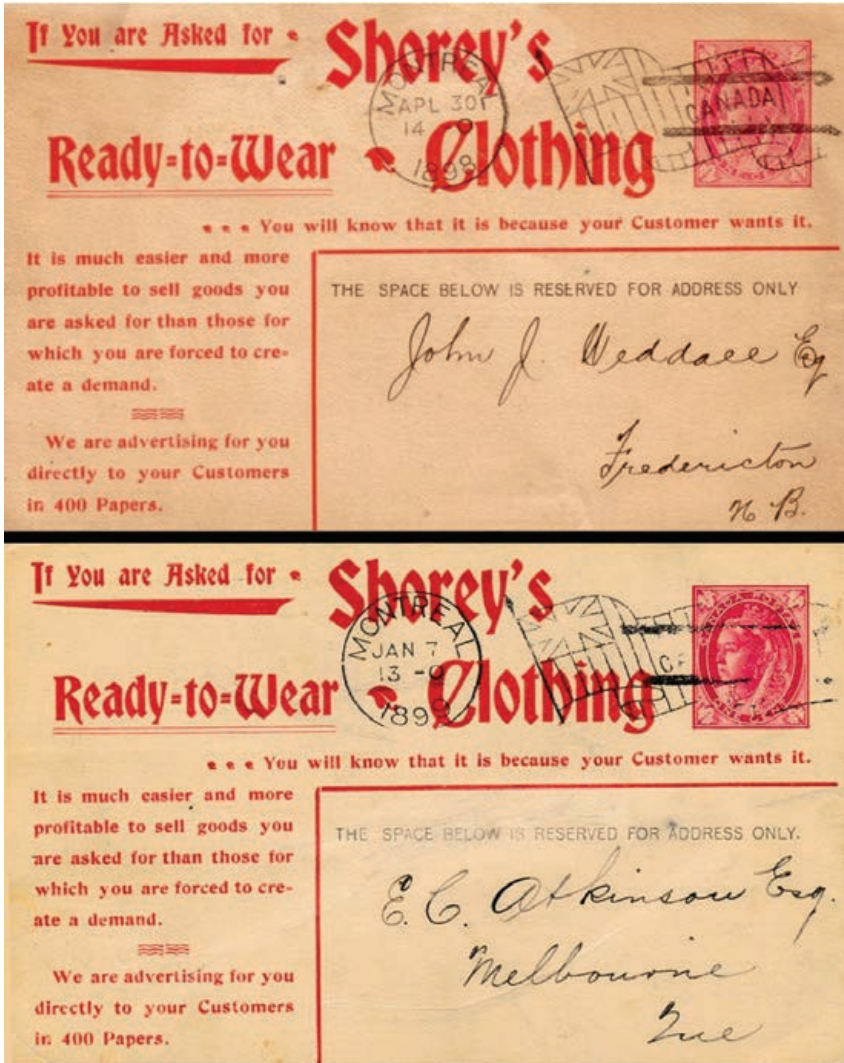 If You are Asked for
Shorey's
Ready=to=Wear Clothing
MONTREAL
APL 30
14 - 0
1898
CANADA
You will know that it is because your Customer wants it.
It is much easier and more
profitable to sell goods you
are asked for than those for
which you are forced to cre-
ate a demand.
We are advertising for you
directly to your Customers
in 400 Papers.
THE SPACE BELOW IS RESERVED FOR ADDRESS ONLY
John J. Weddall Eq
Fredericton
N B.
If You are Asked for
Shorey's
Ready=to=Wear Clothing
MONTREAL
JAN 7
13 - 0
1899
CANADA POSTAGE
You will know that it is because your Customer wants it.
It is much easier and more
profitable to sell goods you
are asked for than those for
which you are forced to cre-
ate a demand.
We are advertising for you
directly to your Customers
in 400 Papers.
THE SPACE BELOW IS RESERVED FOR ADDRESS ONLY.
E. C. Atkinson Esq.
Melbourne
Que